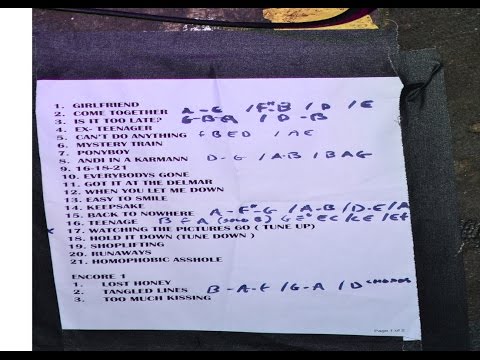 1. GIRLFRIEND
2. COME TOGETHER A-G /F#-B /D /E
3. IS IT TOO LATE? G-B-A /D-B
4. EX- TEENAGER
5. CAN'T DO ANYTHING FBED /AE
6. MYSTERY TRAIN
7. PONYBOY
8. ANDI IN A KARMANN D-G /A-B /BAG
9. 16-18-21
10. EVERYBODYS GONE
11. GOT IT AT THE DELMAR
12. WHEN YOU LET ME DOWN
13. EASY TO SMILE
14. KEEPSAKE
15. BACK TO NOWHERE A-F#-G /A-B /D-E/A
16. TEENAGE
17. WATCHING THE PICTURES GO ( TUNE UP)
18. HOLD IT DOWN (TUNE DOWN )
19. SHOPLIFTING
20. RUNAWAYS
21. HOMOPHOBIC ASSHOLE
ENCORE 1
1. LOST HONEY
2. TANGLED LINES B-A-E /G-A /D CHORDS
3. TOO MUCH KISSING
Page 1 of 2